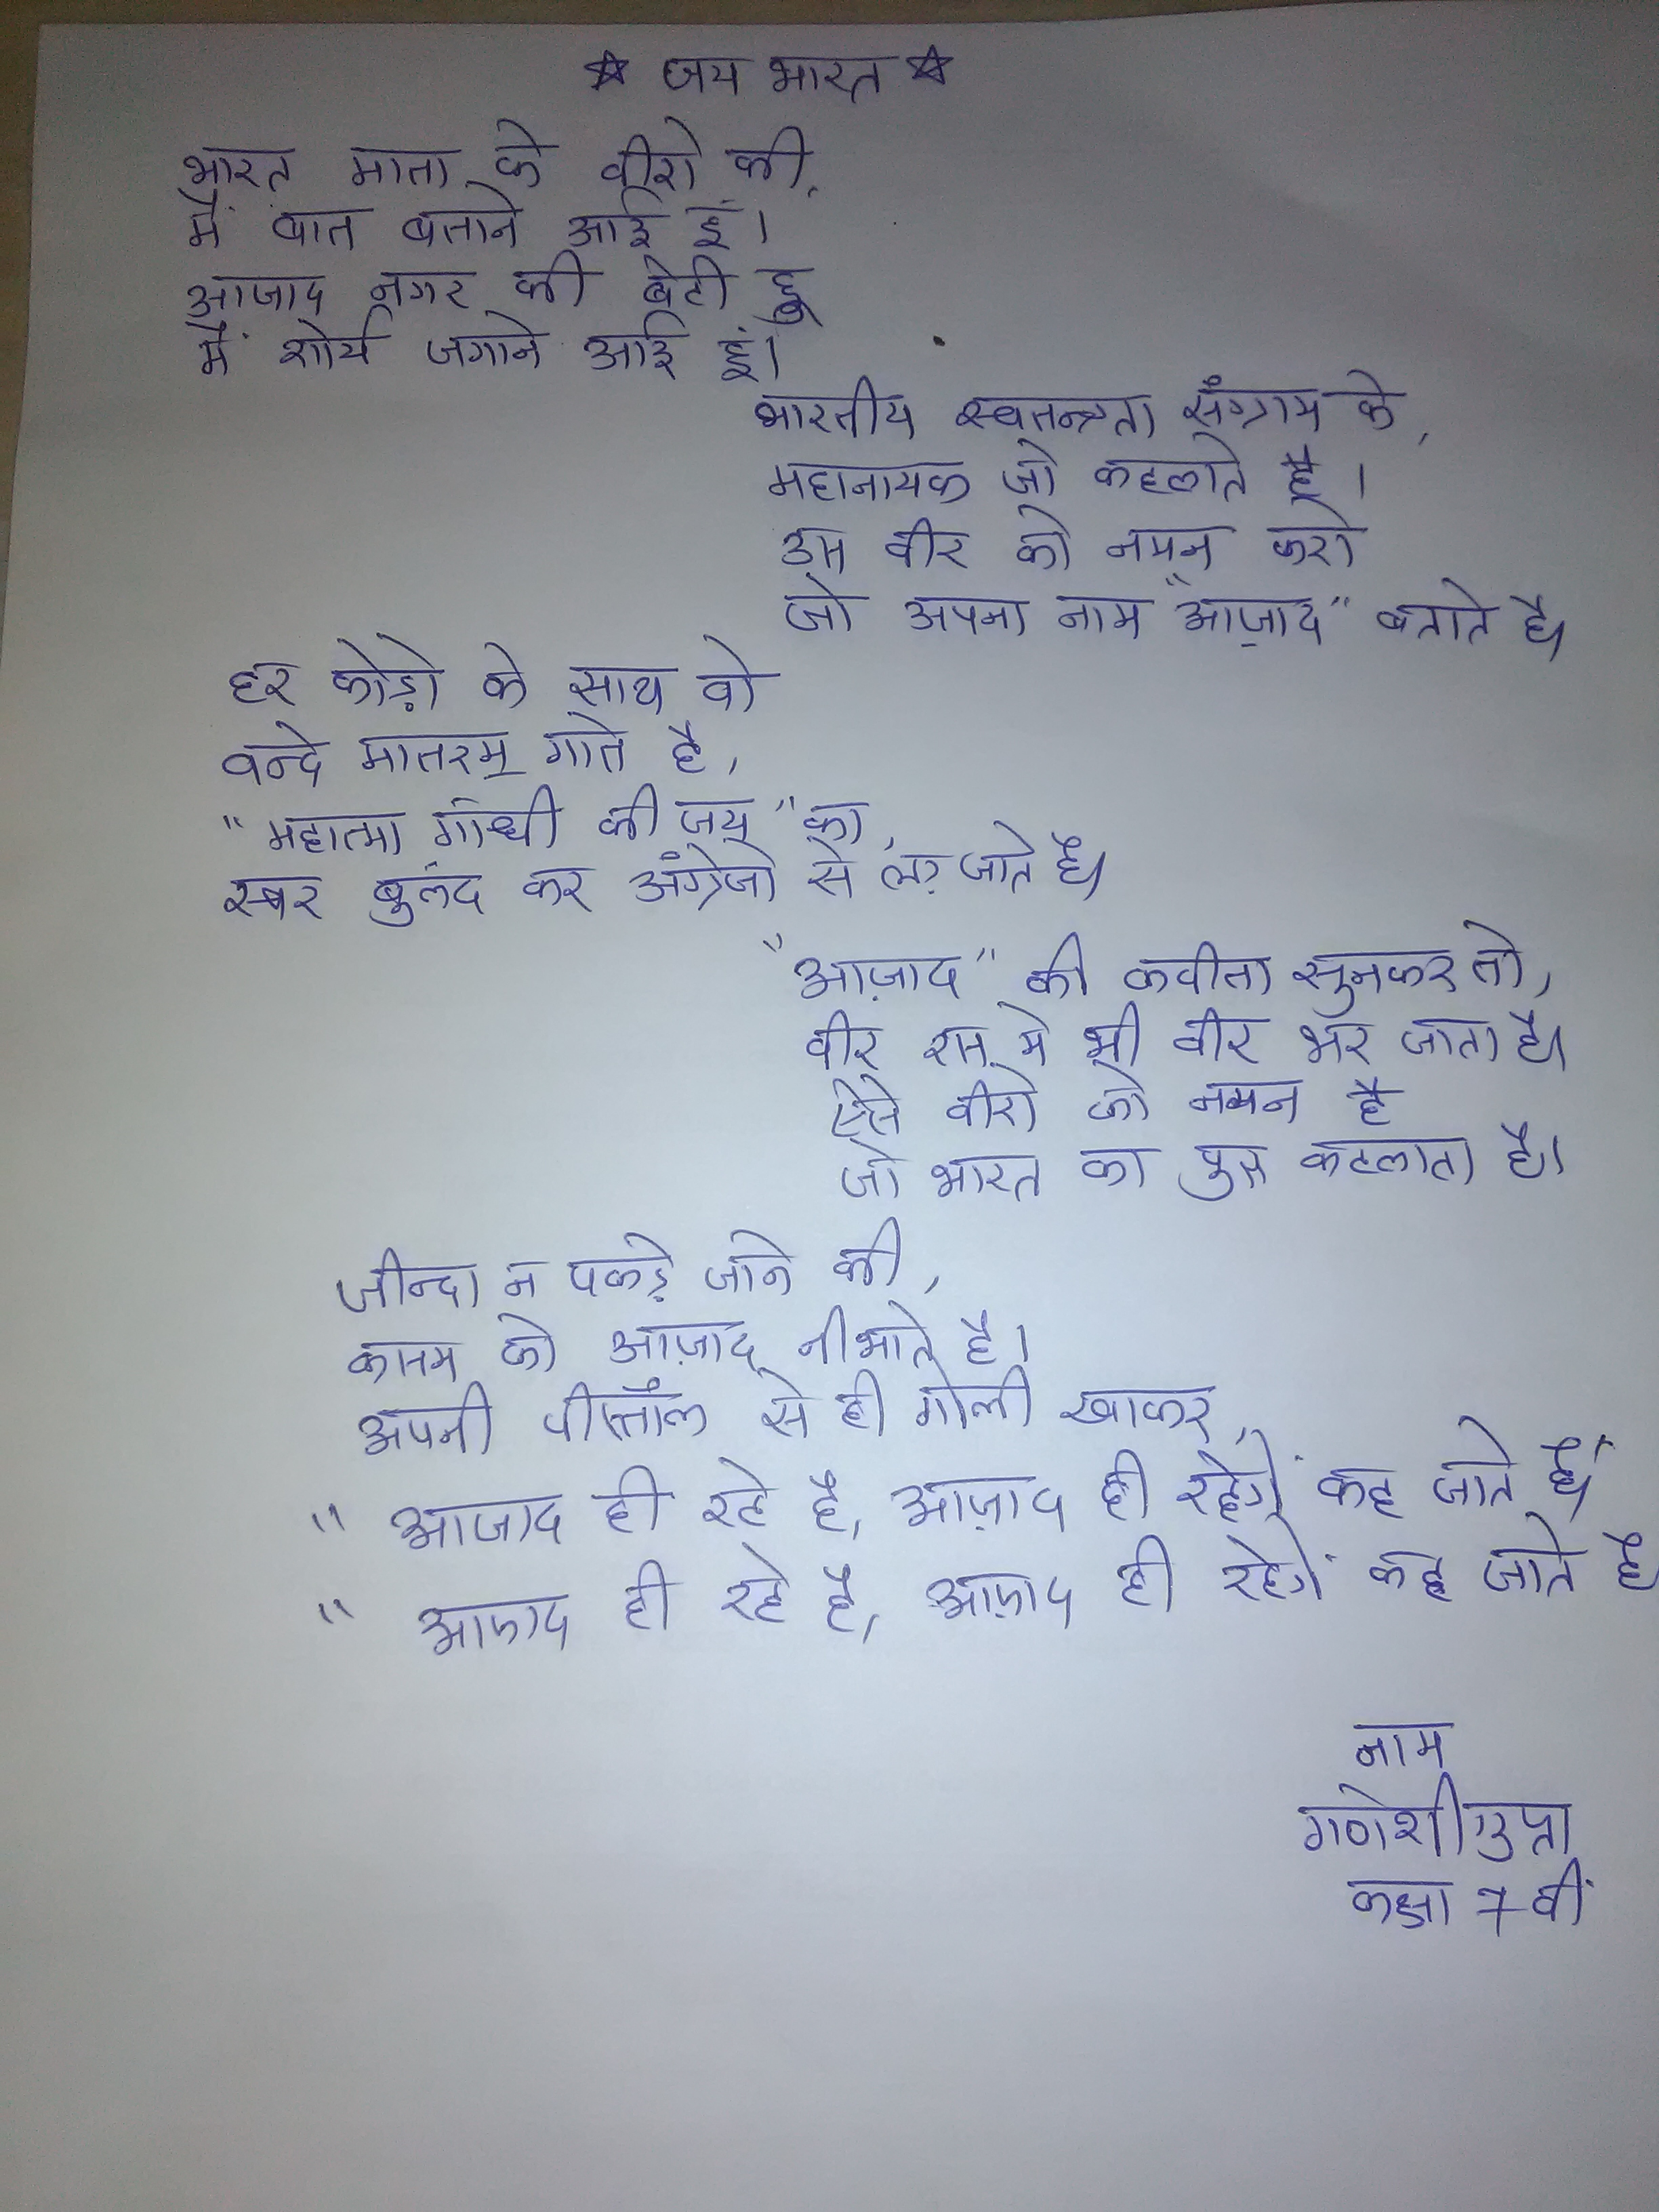 ☆ जय भारत ☆
भारत माता के वीरो की,
मैं बात बताने आई हूं।
आजाद नगर की बेटी हूं
मैं शोर्य जगाने आई हूं।
भारतीय स्वतन्त्रता संग्राम के,
महानायक जो कहलाते है।
उस वीर को नमन करो
जो अपना नाम "आज़ाद" बताते है।
हर कोड़ो के साथ वो
वन्दे मातरम् गाते है,
"महात्मा गांधी की जय" का,
स्वर बुलंद कर अंग्रेजो से लड़ जाते है।
"आज़ाद" की कवीता सुनकर तो,
वीर रस मे भी वीर भर जाता है।
ऐसे वीरो को नमन है
जो भारत का पुत्र कहलाता है।
जीन्दा न पकड़े जाने की,
कसम को आज़ाद नीभाते है।
अपनी पीस्तॉल से ही गोली खाकर,
" आजाद ही रहे है, आज़ाद ही रहेगें कह जाते है"
" आजाद ही रहे है, आज़ाद ही रहेगें कह जाते है
नाम
गणेशी गुप्ता
कक्षा 7 वीं